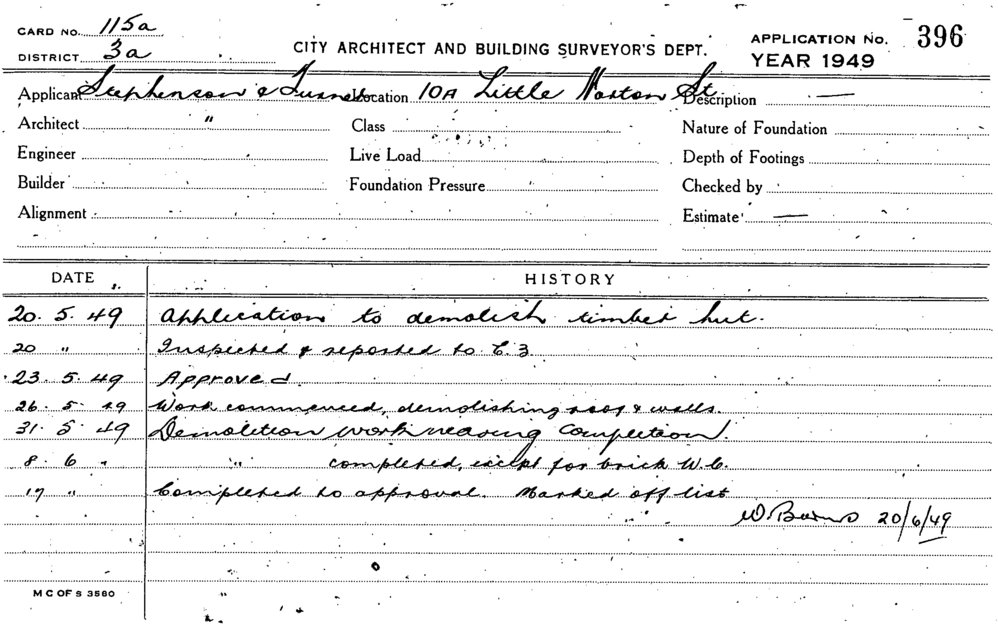 CARD NO. 115a
DISTRICT 3a
CITY ARCHITECT AND BUILDING SURVEYOR'S DEPT.
APPLICATION No. 396
YEAR 1949
Applicant Stephenson & Turner Location 10A Little Norton St. Description —
Architect " Class Nature of Foundation
Engineer Live Load Depth of Footings
Builder Foundation Pressure Checked by
Alignment Estimate —
DATE HISTORY
20. 5. 49 Application to demolish timber hut.
20 " Inspected & reported to C.3
23. 5. 49 Approved.
26. 5. 49 Work commenced, demolishing roof & walls.
31. 5. 49 Demolition work nearing completion.
8. 6 " " completed, except for brick W.C.
17 " Completed to approval. Marked off list
W. Burns 20/6/49
M C OF S 3560